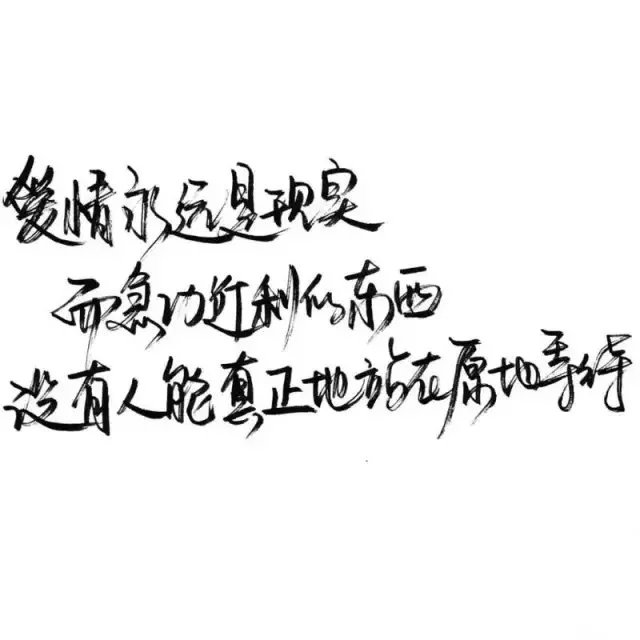 爱情永远是现实
而急功近利的东西
没有人能真正地站在原地等待